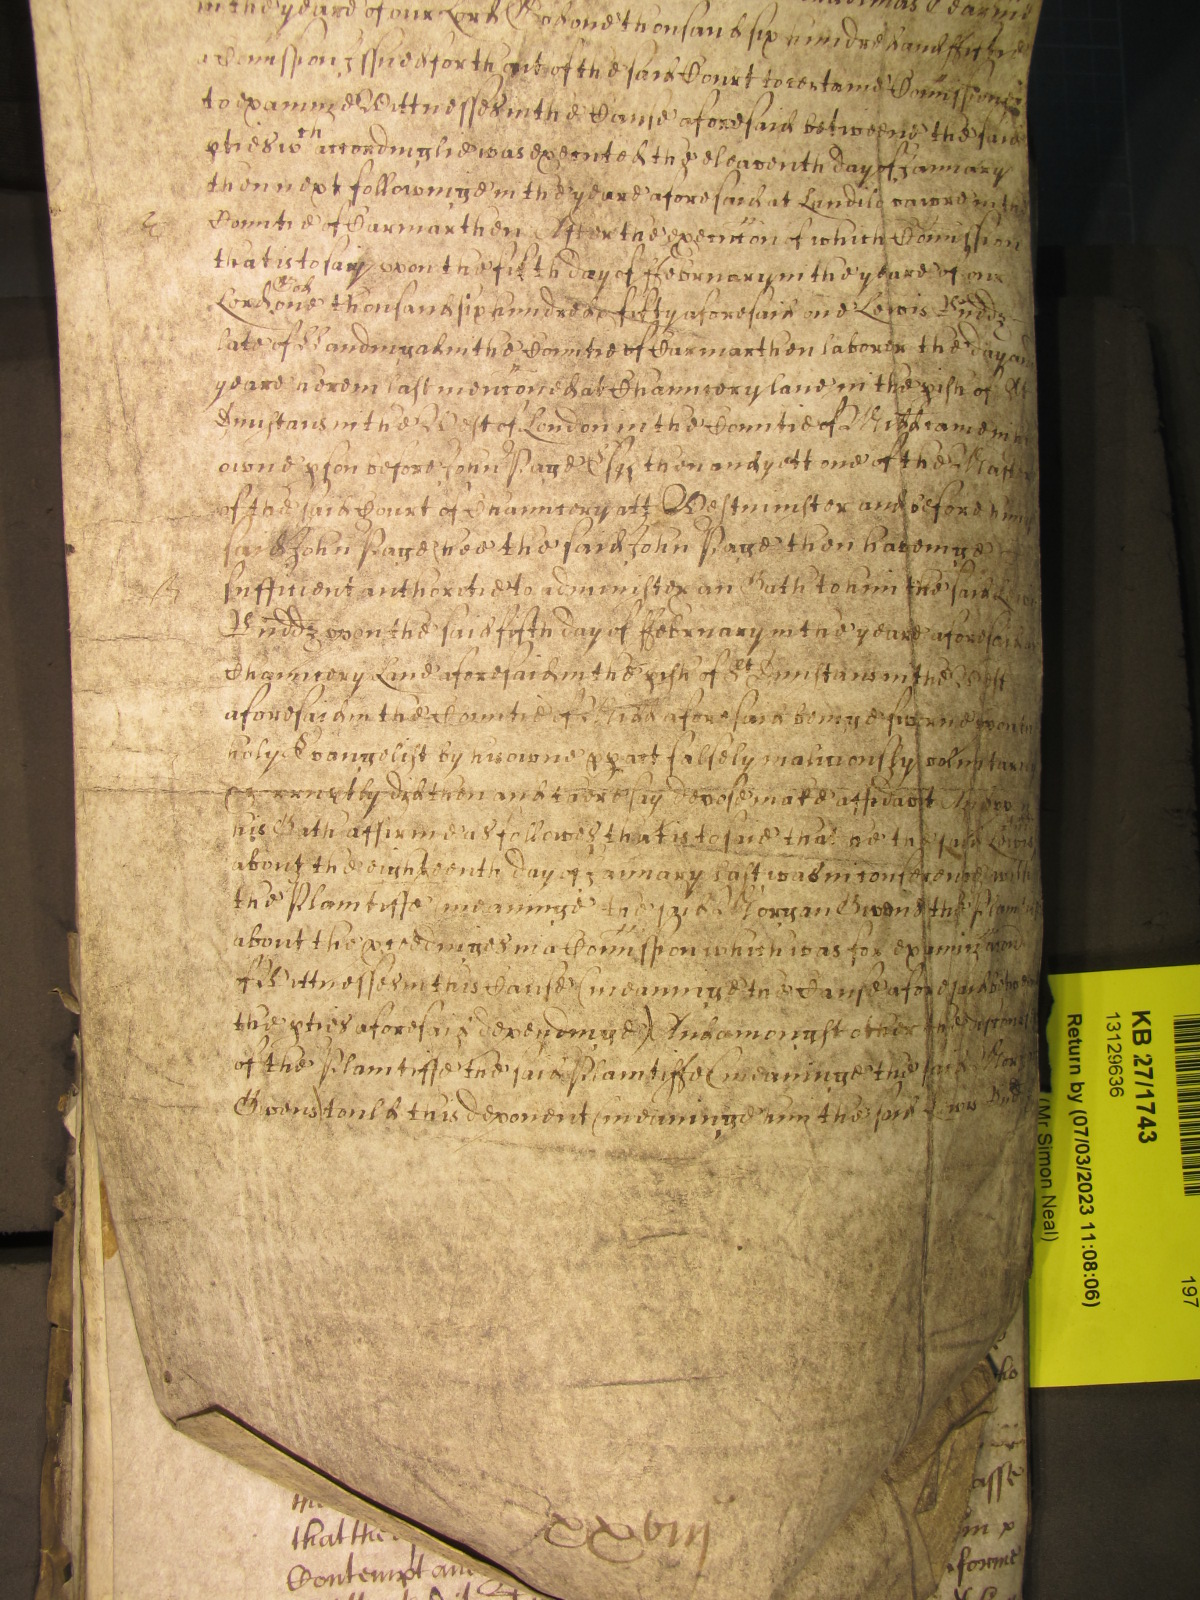 in the yeare of our Lord God one thousand six hundred and fiftie
Comission issued forth out of the said Court to certaine Comissioners
to examine Wittnesses in the Cause aforesaid betweene the said
pties wch accordinglie was executed the eleaventh day of January
then next followinge in the yeare aforesaid at Landilo vawre in the
Countie of Carmarthen After the execucon of which Comission
that is to say upon the fifth day of ffebruary in the yeare of our
Lord God one thousand six hundred fifty aforesaid one Lewis
late of in the Countie of Carmarthen laborer the day and
yeare herein last menconed at Chauncery lane in the pish of St
Dunstans in the West of London in the Countie of Midd came in his
owne pson before John Page Esqr then and yett one of the Masters
of the said Court of Chauncery att Westminster and before him the
said John Page (hee the said John Page then havinge
sufficient authoritie to administer an Oath to him the said Lewis
upon the said fifth day of ffebruary in the yeare aforesaid at
Chauncery Lane aforesaid in the pish of St Dunstans in the West
aforesaid in the Countie of Midd aforesaid beinge sworne upon the
holy Evangelist by his owne pp act falsely maliciously voluntarily
& corruptly did then and there say depose make affidavit And upon
his Oath affirme as followes that is to saie that he the said Lewis
about the eighteenth day of January last was in conference with
the Plaintiffe (meaninge the said Morgan Owens the Plaintiffe
about the pceedinges in a Comission which was for examinacon
of Wittnesses in this Cause (meaninge the Cause aforesaid betweene
the pties aforesaid dependinge) And amongst other the
of the Plaintiffe the said Plaintiffe (meaninge the said Morgan
Owens) tould this deponent (meaninge him the said Lewis
xxviij
that the
Contempt and
asse
in p
forme
KB 27/1743
13129636
Return by (07/03/2023 11:08:06)
(Mr Simon Neal)
197